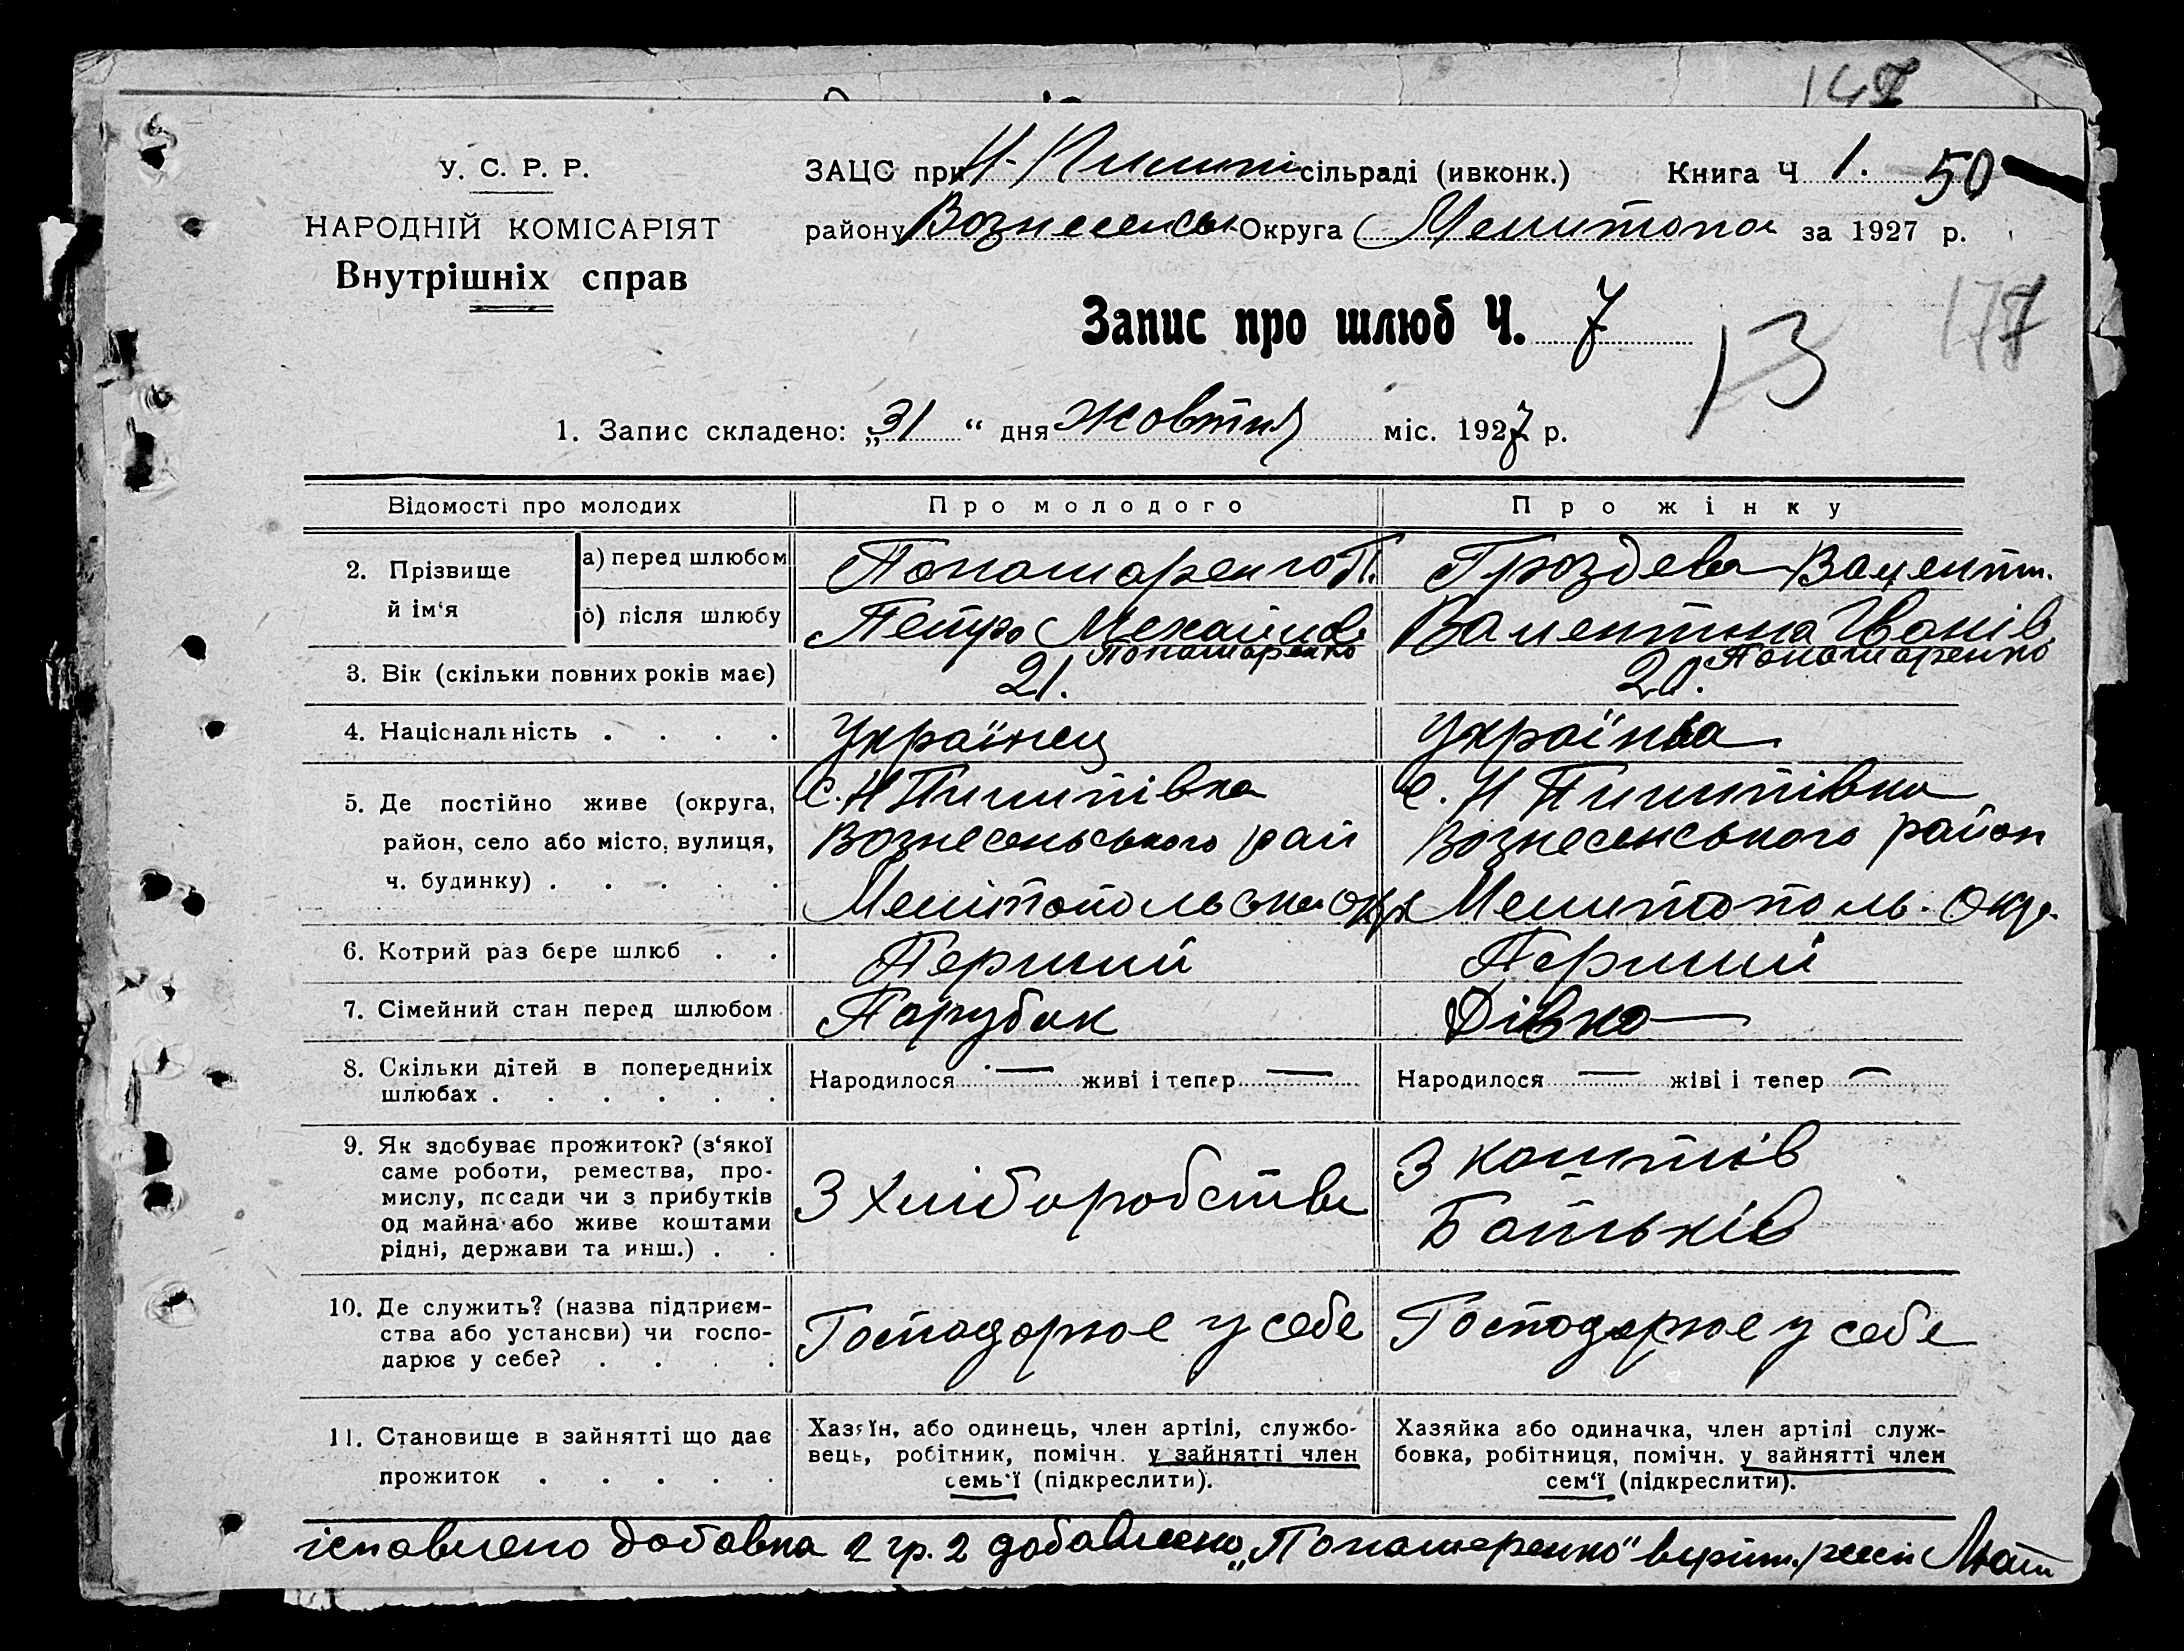 147
У. С. Р. Р.
НАРОДНІЙ КОМІСАРІЯТ
Внутрішніх справ
ЗАЦС при Н-Пилипі сільраді (ивконк.) Книга Ч 1. 50
району Вознесенськ Округа Мелитопол за 1927 р.
Запис про шлюб Ч. 7
13
177
1. Запис складено: „31" дня жовтня міс. 1927 р.
Відомості про молодих Про молодого Про жінку
2. Прізвище й ім'я
а) перед шлюбом Понамаренко П. Гроздева Валентин.
б) після шлюбу Петро Механдов Валентина Іванів.
Понамаренко Понамаренко
3. Вік (скільки повних років має) 21. 20.
4. Національність . . . . Українец Українка
5. Де постійно живе (округа, С. Н Пилипівка С. Н Пилипівка
район, село або місто, вулиця, Вознесенського рай Вознесенського район
ч. будинку) . . . . . Мелітопольська окр Мелитополь. Окр.
6. Котрий раз бере шлюб . . Перший Перший
7. Сімейний стан перед шлюбом Парубак Дівка
8. Скільки дітей в попередниіх
шлюбах . . . . . . Народилося — живі і тепер — Народилося — жіві і тепер —
9. Як здобуває прожиток? (з'якої
саме роботи, ремества, про-
мислу, посади чи з прибутків
од майна або живе коштами
рідні, держави та инш.) . .
З хліборобства
З коштів
Батьків
10. Де служить? (назва підприєм-
ства або установи) чи госпо-
дарює у себе? . . . .
Господарює у себе Господарює у себе
11. Становище в зайнятті що дає
прожиток . . . . .
Хазяїн, або одинець, член артілі, службо-
вець, робітник, помічн. у зайнятті член
семь'ї (підкреслити).
Хазяйка або одиначка, член артілі служ-
бовка, робітниця, помічн. у зайнятті член
сем'ї (підкреслити).
добавка 2 гр. 2 добавлено „Понамаренко"